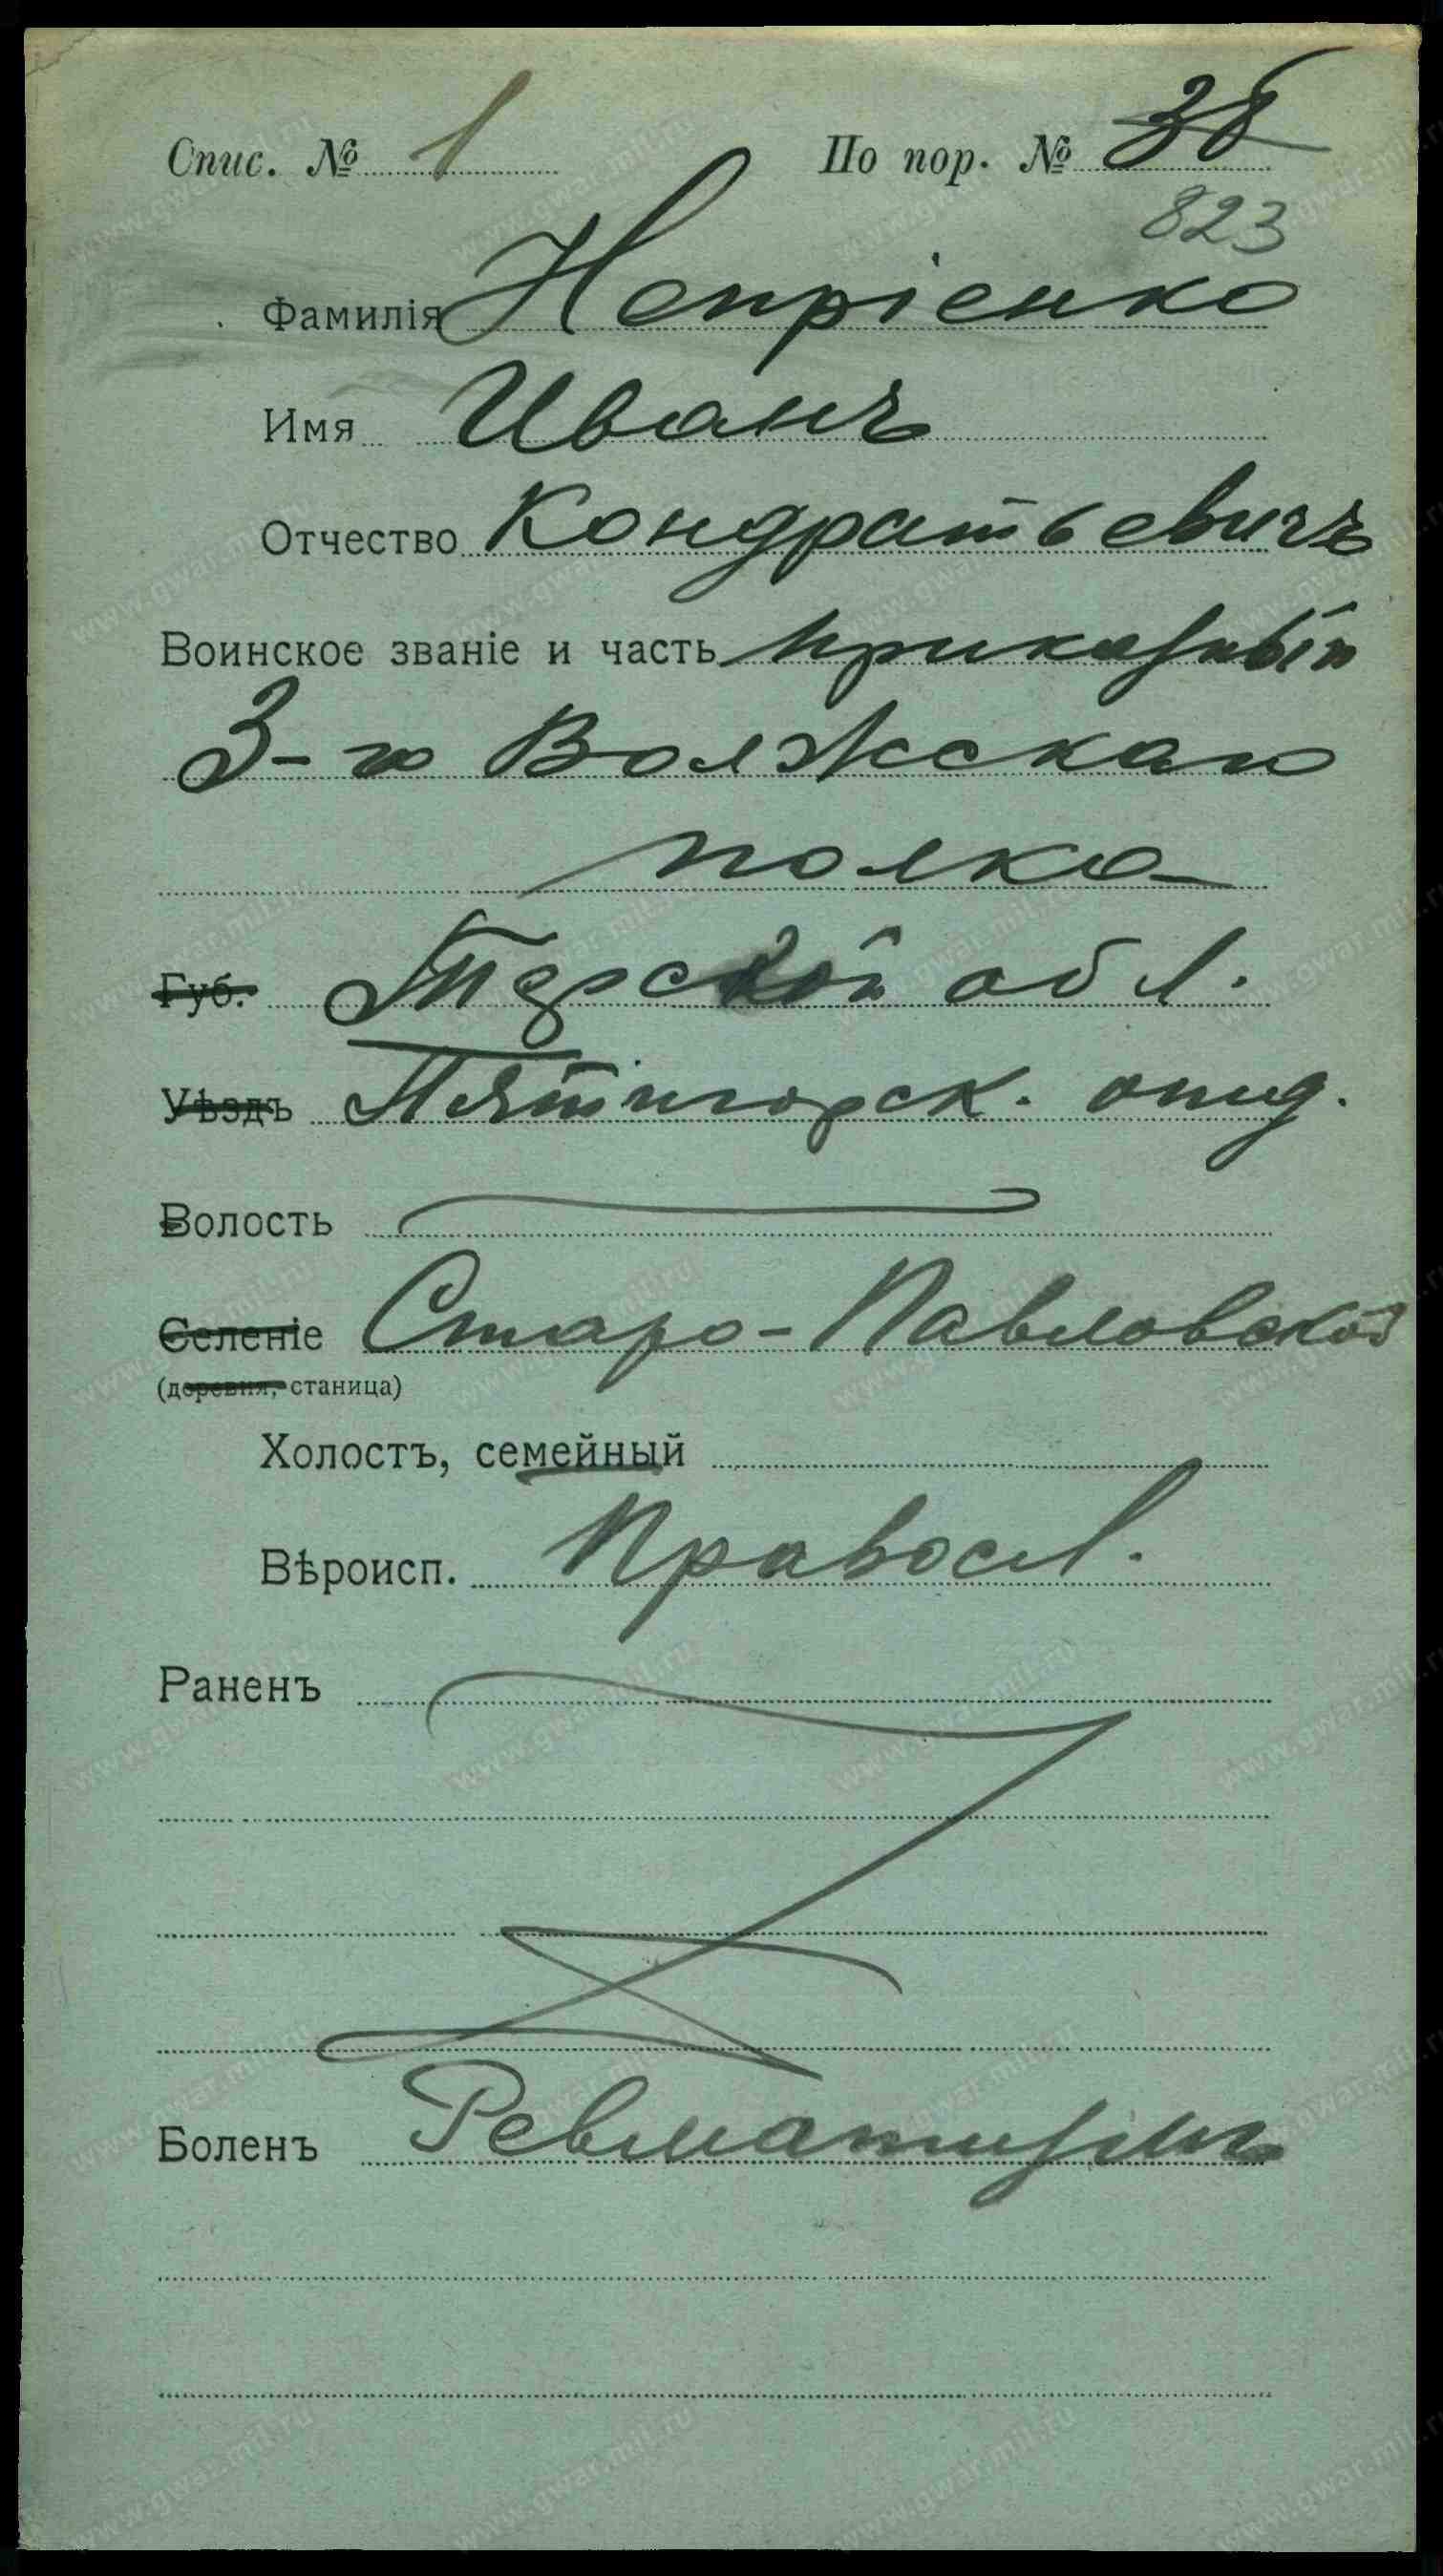 Спис. № 1 По пор. № 38
823
Фамилія Непріенко
Имя Иванъ
Отчество Кондратьевичъ
Воинское званіе и часть приказный
3-го Волжскаго
полка
Губ. Терской обл.
Уѣздъ Пятигорск. отд.
Волость
Селеніе Старо-Павловской
(деревня, станица)
Холостъ, семейный
Вѣроисп. Правосл.
Раненъ
Боленъ Ревматизмъ